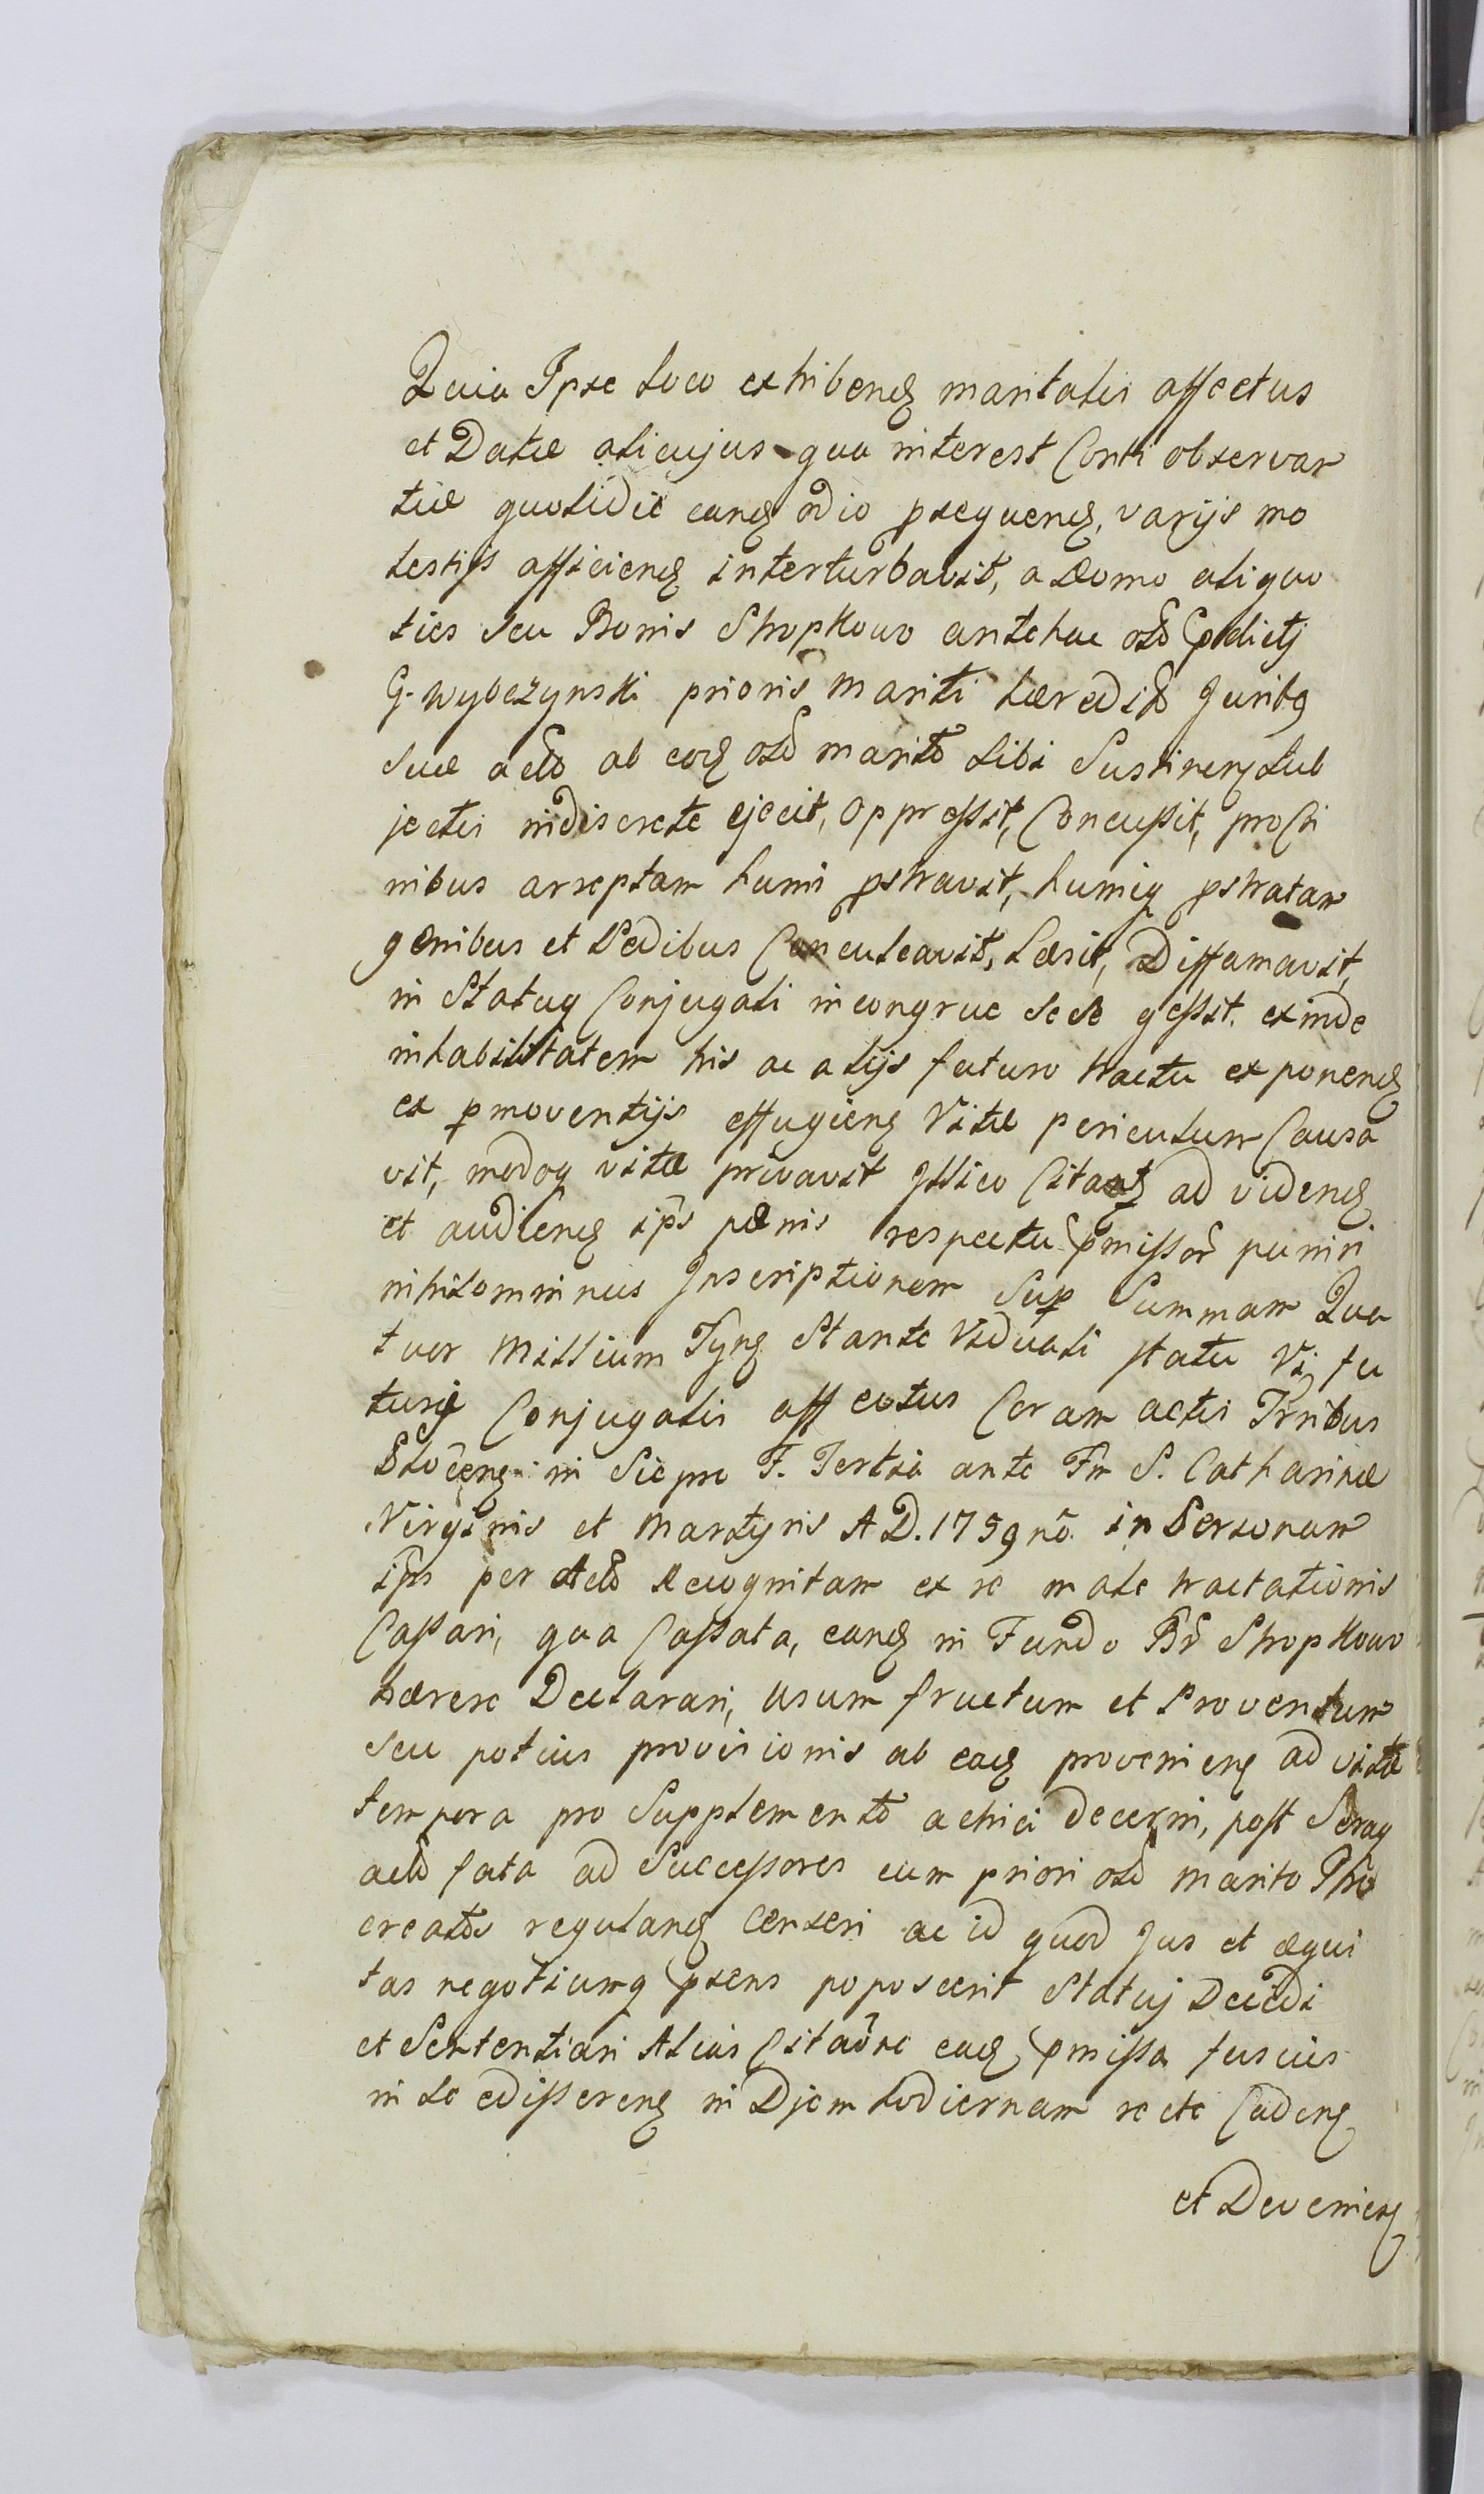 Quia Ipse loco exhibenɖ maritalis affectus
et Datæ alicujus qua interest Conti observan
tiæ quotidie eanɖ odio psequenɖ, varijs mo
lestijs afficienɖ interturbavit, a Domo aliquo
ties seu Bonis Skopkowo antehac olῖ pdictj
G. Wybczynski prioris Mariti hæredis Juribꝰ
suæ actῖ ab eoɖ olῖ marito sibi Sustinenɖ sub
jectis indiscrete ejecit, oppressit, Concussit, pro Cri
nibus arreptam humi pstravit, humiq pstratam
genibus et Pedibus Conculcavit, Læsit, Diffamavit,
in Statuq Conjugali incongrue sese gessit, exinde
inhabilitatem his ac alijs futuro tractu exponenɖ
ex pmoventijs effugienɖ Vitæ periculum Causa
vit, modoq vitæ privavit Illico Citatɖ ad videnɖ
et audienɖ ip̃s pænis respectu pmissor̃ puniri
nihilominus Inscriptionem Sup Summam Qua
tuor Millium Tynɖ Stante Viduali statu Vi fu
turi Conjugalis affectus Coram actis Trribus
Plocenɖ in Sierpc F. Tertia ante Fm S. Catharinæ
Virginis et Martyris A D. 1759nõ. in Personam
ip̃s per Actῖ Recognitam ex re male tractationis
Cassari, qua Cassata, eanɖ in Fundo Br̃ Skopkowo
hærere Declarari, usum fructum et Proventum
seu potius provisionis ab eaɖ provenienɖ ad vitæ
tempora pro Supplemento achici decerni, post Seraq
actῖ fata ad Successores cum priori olῖ Marito Pro
creatos regulanɖ Censeri ac id quod Jus et æqui
tas negotiumq psens poposcerit Statuj Decidi
et Sententiari Alias Citaõne eaɖ pmissa fusius
in se edisserenɖ in Diem hodiernam recte Cadenɖ
et Devenienɖ